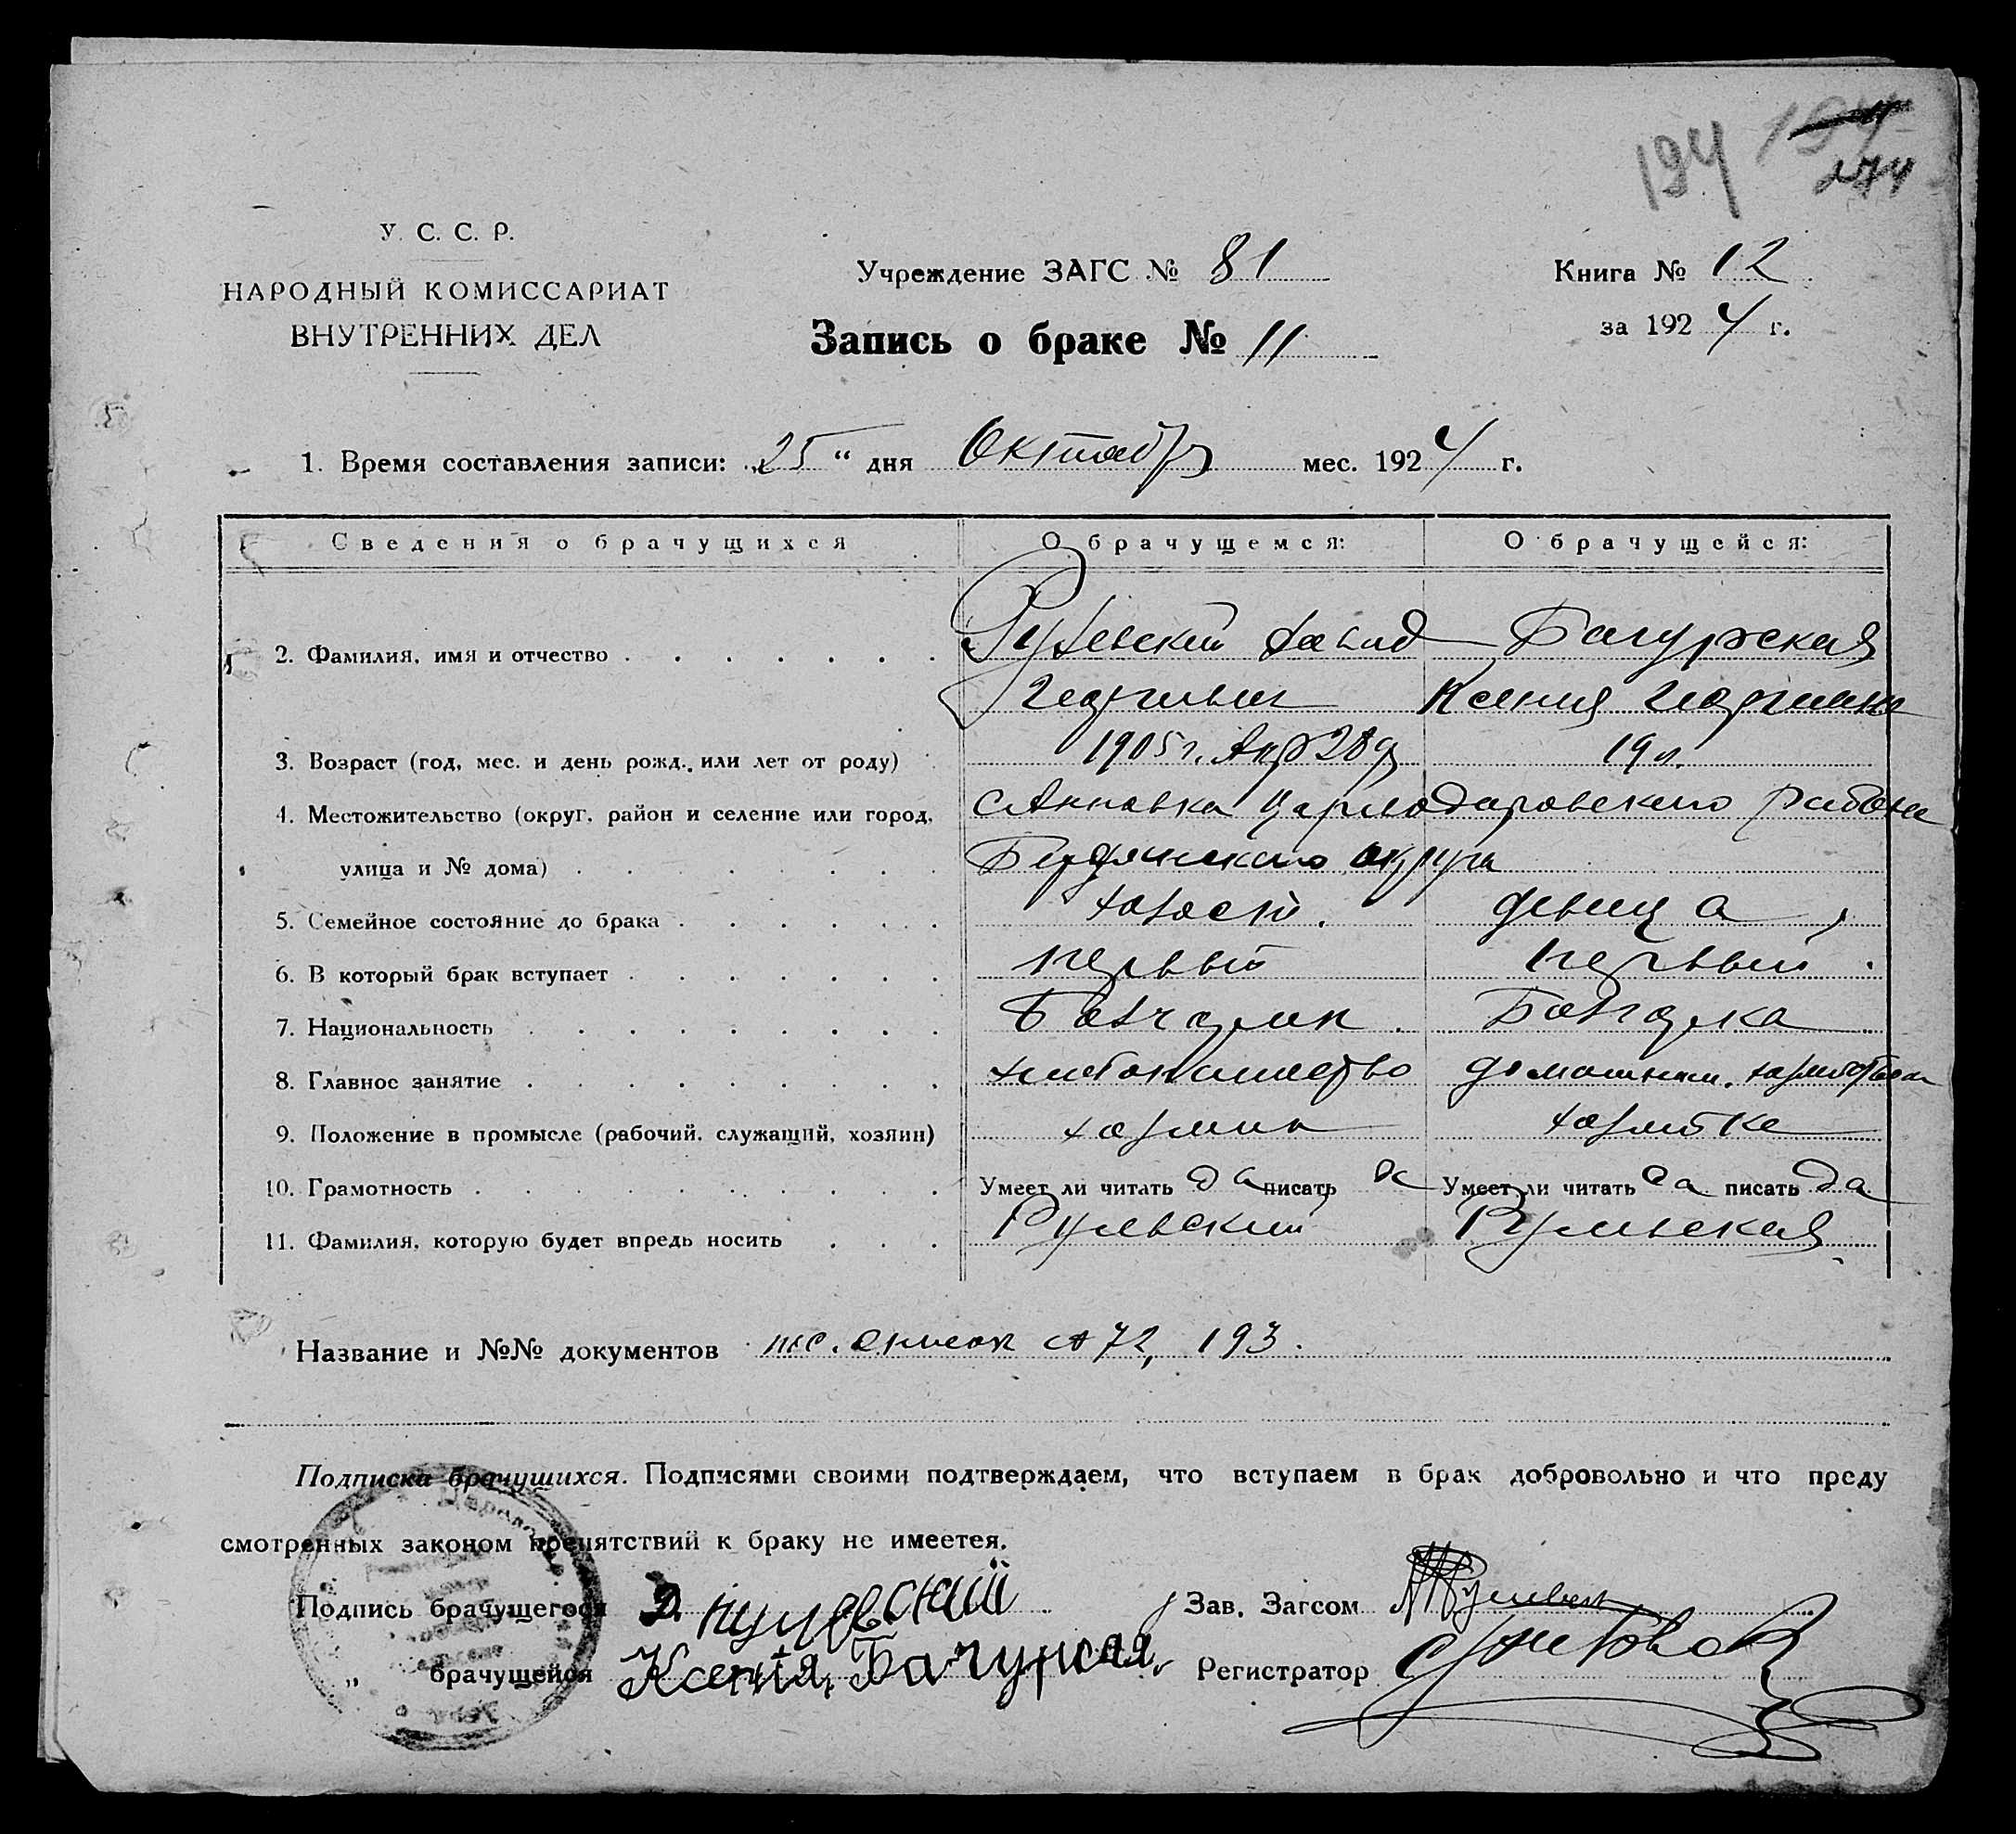 194 194
274
У. С. С. Р.
НАРОДНЫЙ КОМИССАРИАТ
ВНУТРЕННИХ ДЕЛ
Учреждение ЗАГС № 81
Книга № 12
за 1924 г.
Запись о браке № 11
1. Время составления записи: „25“ дня Октябр мес. 1924 г.
Сведения о брачущихся О брачущемся: О брачущейся:
2. Фамилия, имя и отчество Давид Багурская
Ксения
3. Возраст (год, мес. и день рожд., или лет от роду) 1905 г. Апр 28 д 19 л.
4. Местожительство (округ, район и селение или город, с Анновка Цареодаровского района
улица и № дома) Бердянского округа
5. Семейное состояние до брака холост. девица
6. В который брак вступает первый первый
7. Национальность
8. Главное занятие хлебопашество домашнем.
9. Положение в промысле (рабочий, служащий, хозяин) хозяин хозяйка
10. Грамотность Умеет ли читать да писать да Умеет ли читать да писать да
11. Фамилия, которую будет впредь носить
Название и №№ документов пос. список № 72, 193.
Подписка брачущихся. Подписями своими подтверждаем, что вступаем в брак добровольно и что преду
смотренных законом препятствий к браку не имеется.
Подпись брачущегося Д.
Зав. Загсом
„ брачущейся Ксенія Бачурская
Регистратор